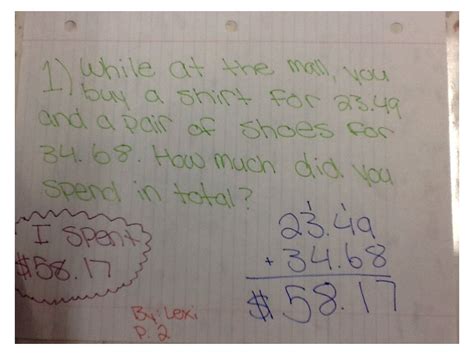 1) While at the mall, you
buy a shirt for 23.49
and a pair of shoes for
34.68. How much did you
spend in total?
I spent
$58.17
1 1
23.49
+ 34.68
$58.17
By: Lexi
P. 2